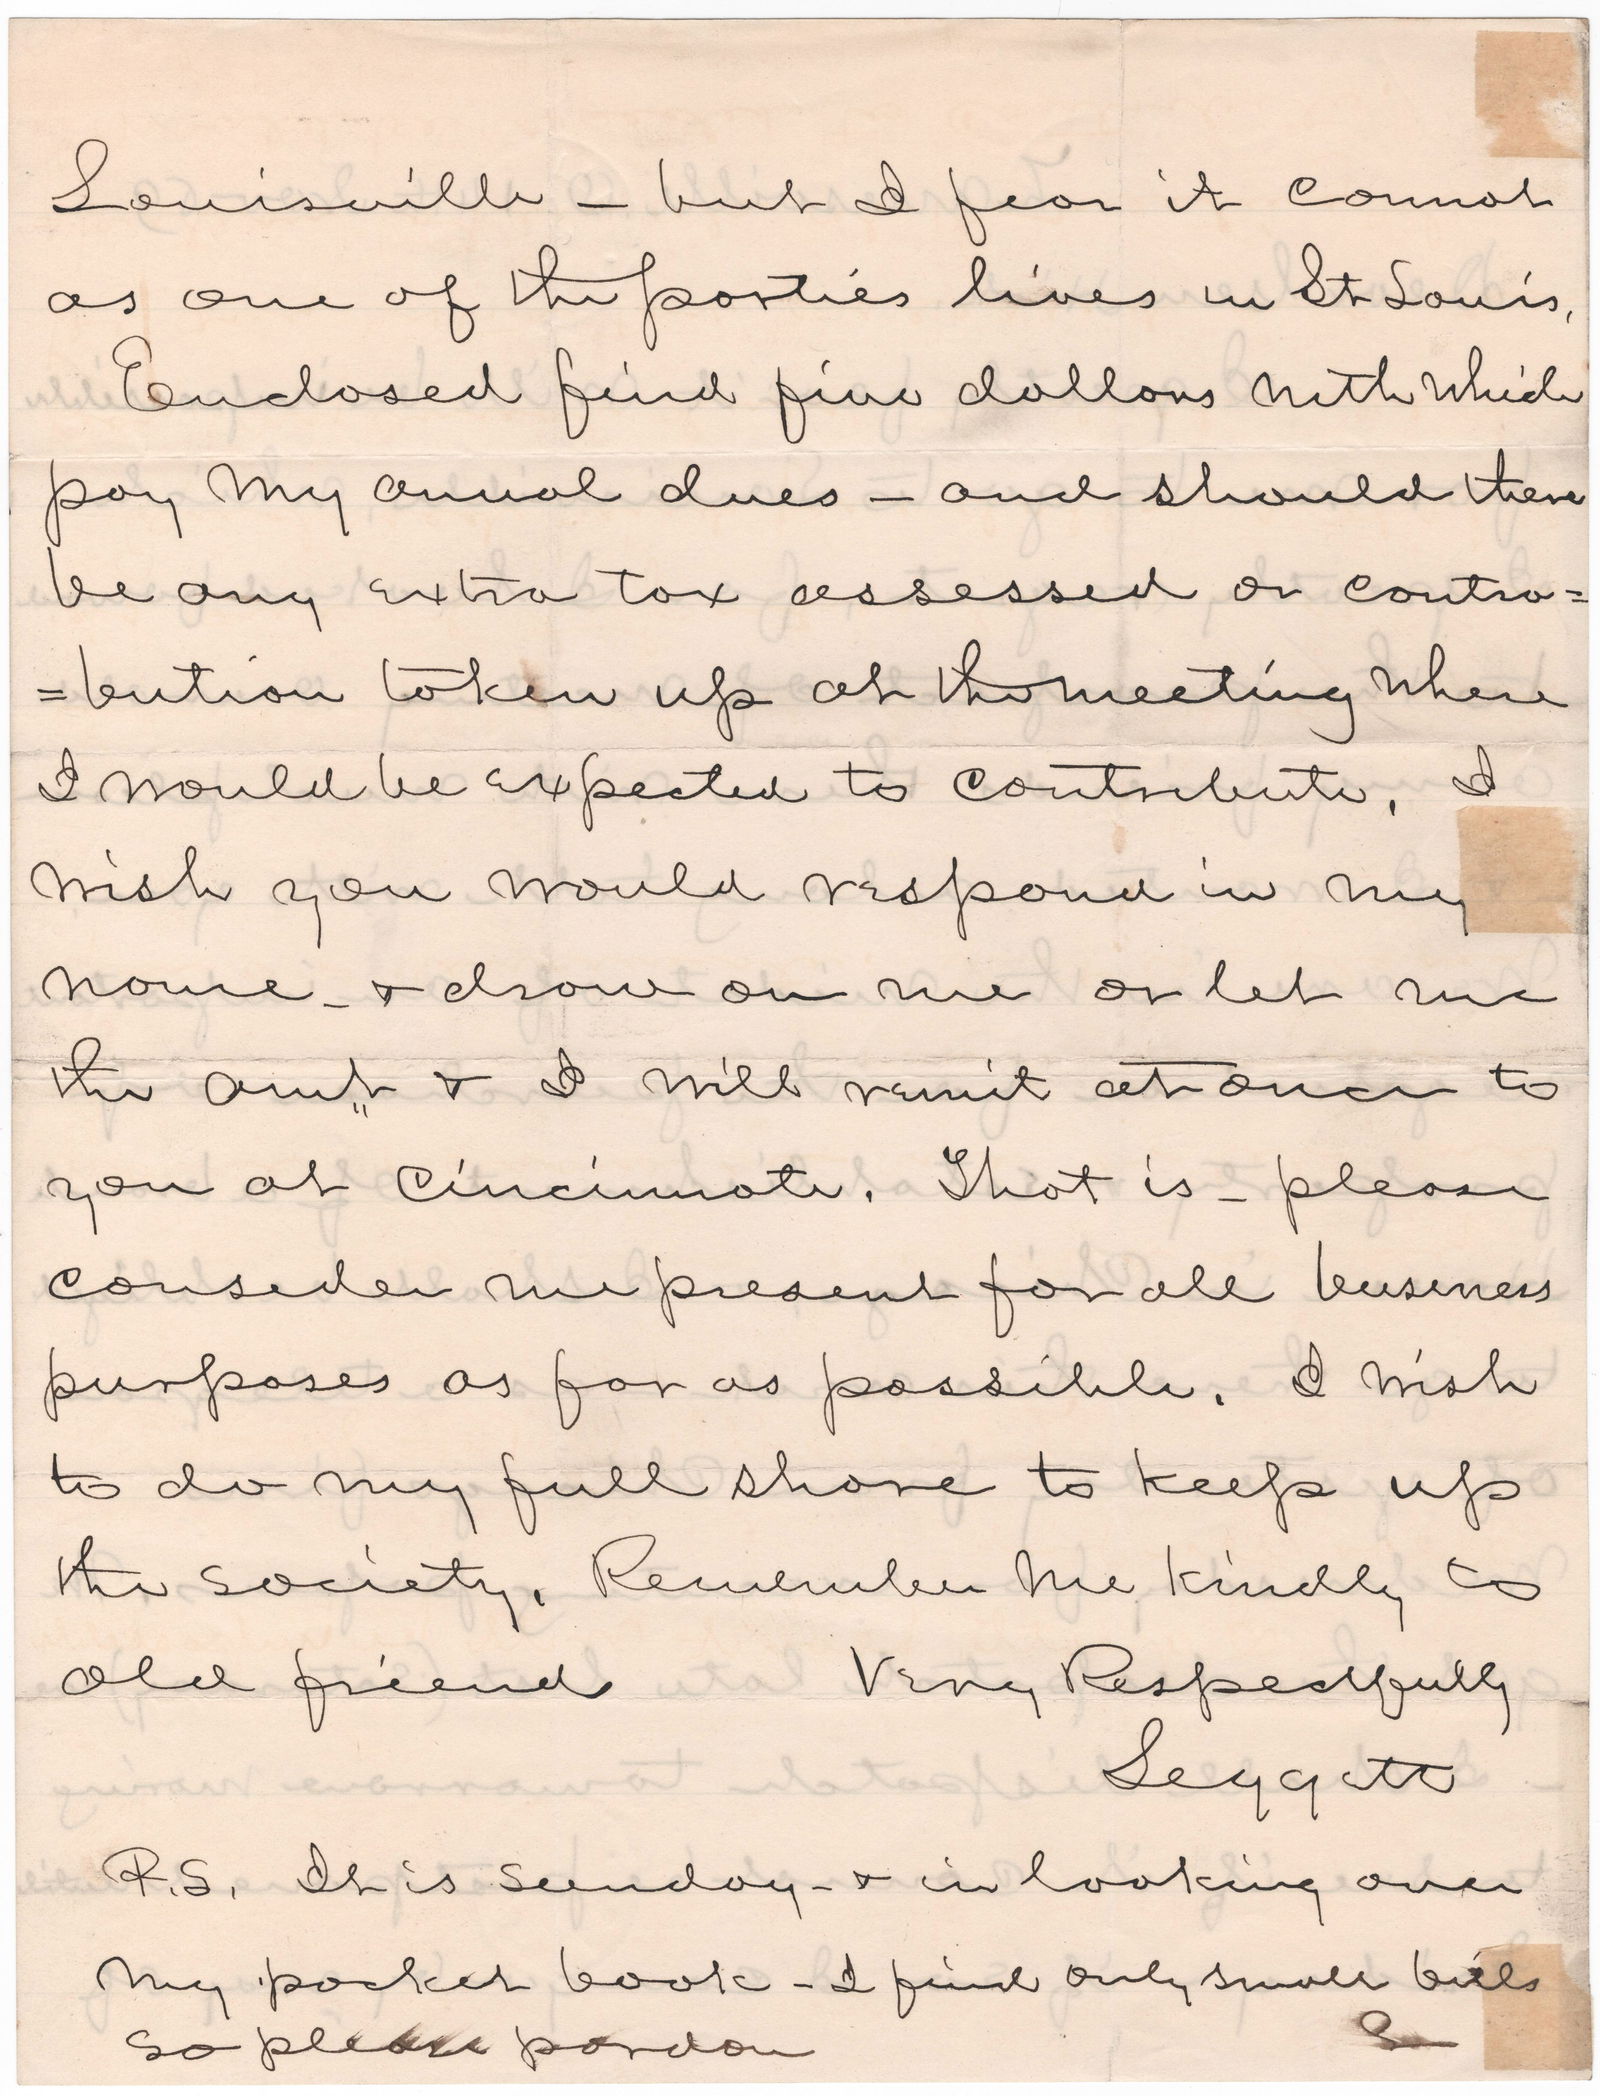 Louisville – but I fear it cannot
as one of the parties lives in St Louis,
Enclosed find five dollars with which
pay my anual dues – and should there
be any extra tax assessed or contra=
=bution taken up at the meeting where
I would be expected to contribute, I
wish you would respond in my
name – & draw on me or let me
the amt & I will remit at once to
you at Cincinnate. That is – please
conseder me present for all buseness
purposes as far as possible. I wish
to do my full share to keep up
the society. Remember me kindly to
old friend Very Respectfully
Leggett
P.S. It is Sunday – & in looking over
my pocket book – I find only small bills
so please pardon